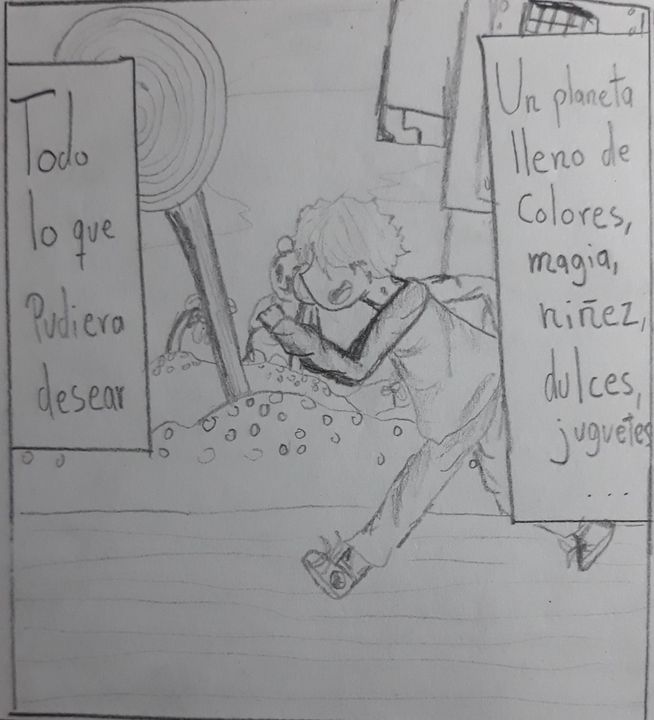 Todo
lo que
Pudiera
desear
Un planeta
lleno de
Colores,
magia,
niñez,
dulces,
juguetes
...